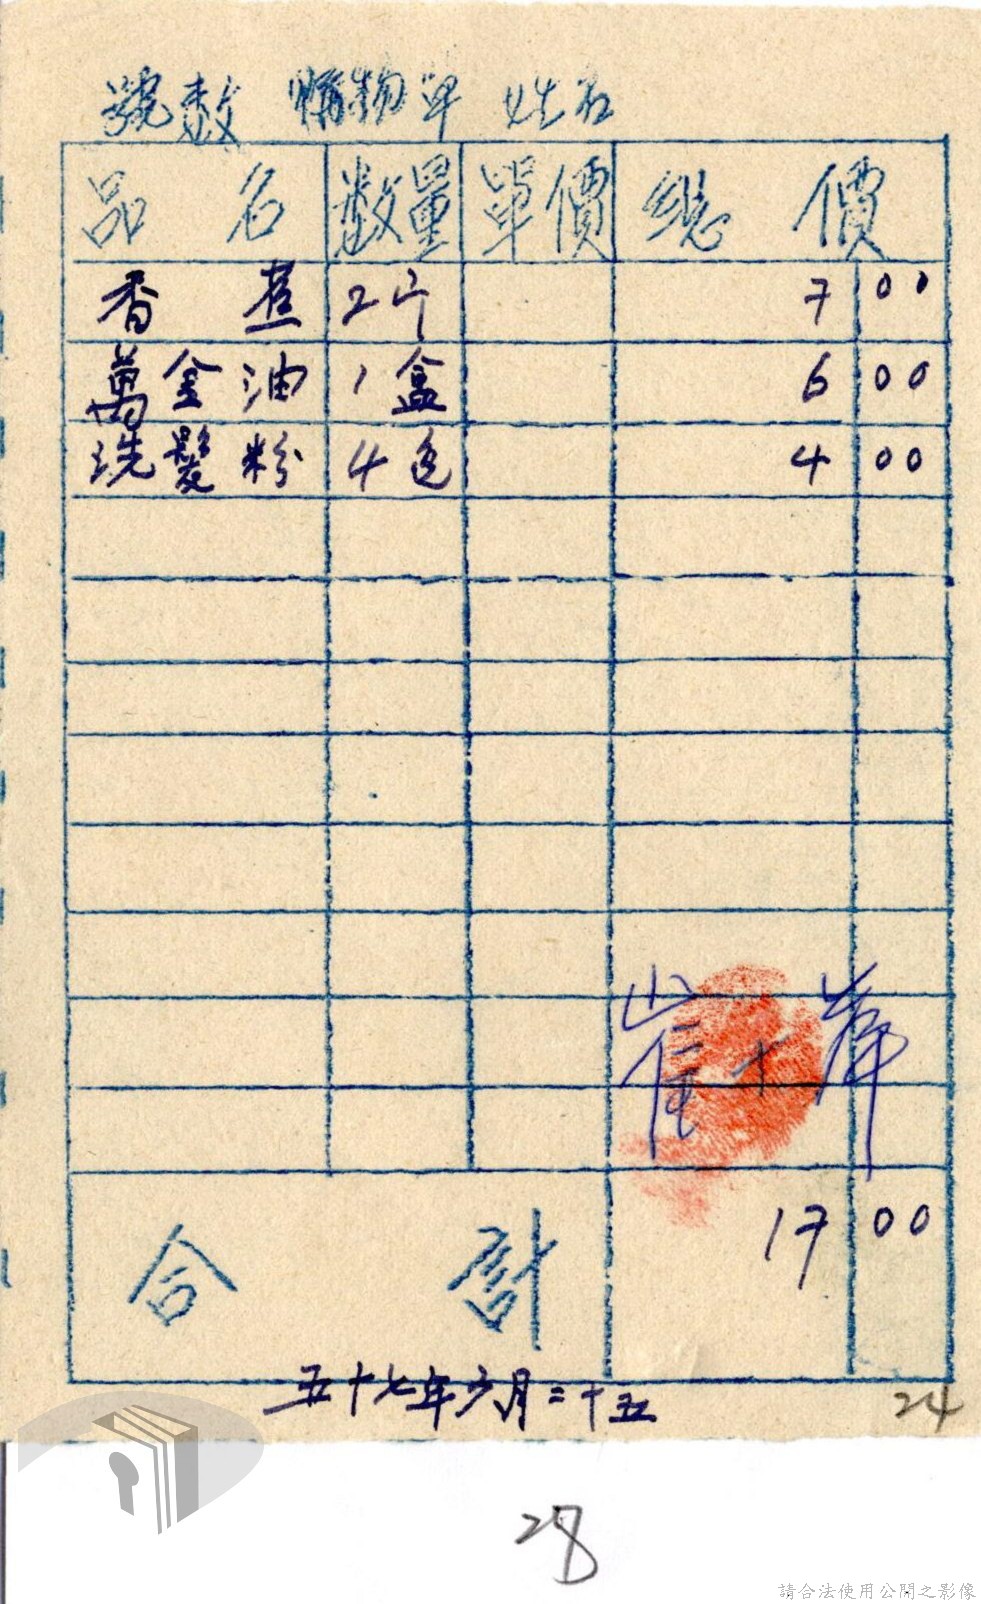 號数 購物單 姓名
品名 数量 單價 總價
香蕉 2斤 7 00
萬金油 1盒 6 00
洗髮粉 4包 4 00
崔小萍
合計 17 00
五十七年六月二十五
24
28
請合法使用公開之影像